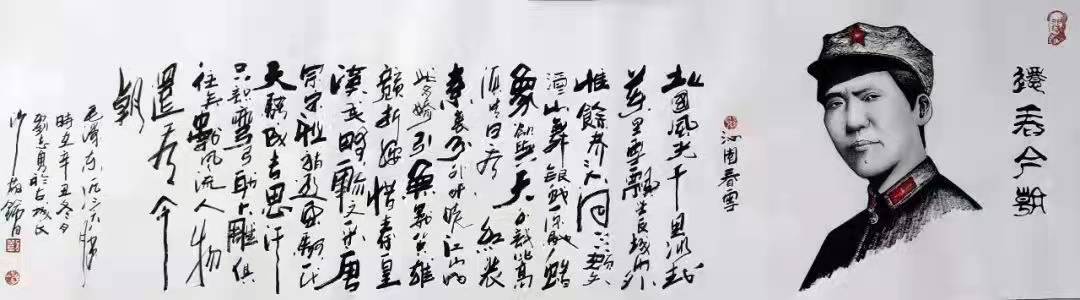 還看今朝
沁園春雪
北國風光千里冰封
萬里雪飄望長城內外
惟餘莽々大河上下頓失
滔々山舞銀蛇原馳蠟
象欲與天公試比高
須晴日看紅裝
素裹分外妖嬈江山如
此多嬌引無數英雄
競折腰惜秦皇
漢武略輸文采唐
宗宋祖稍遜風騷一代
天驕成吉思汗
只識彎弓射大雕俱
往矣數風流人物
還看今
朝
毛澤東沁園春
時在辛丑冬月
劉志勇於古城長
沙